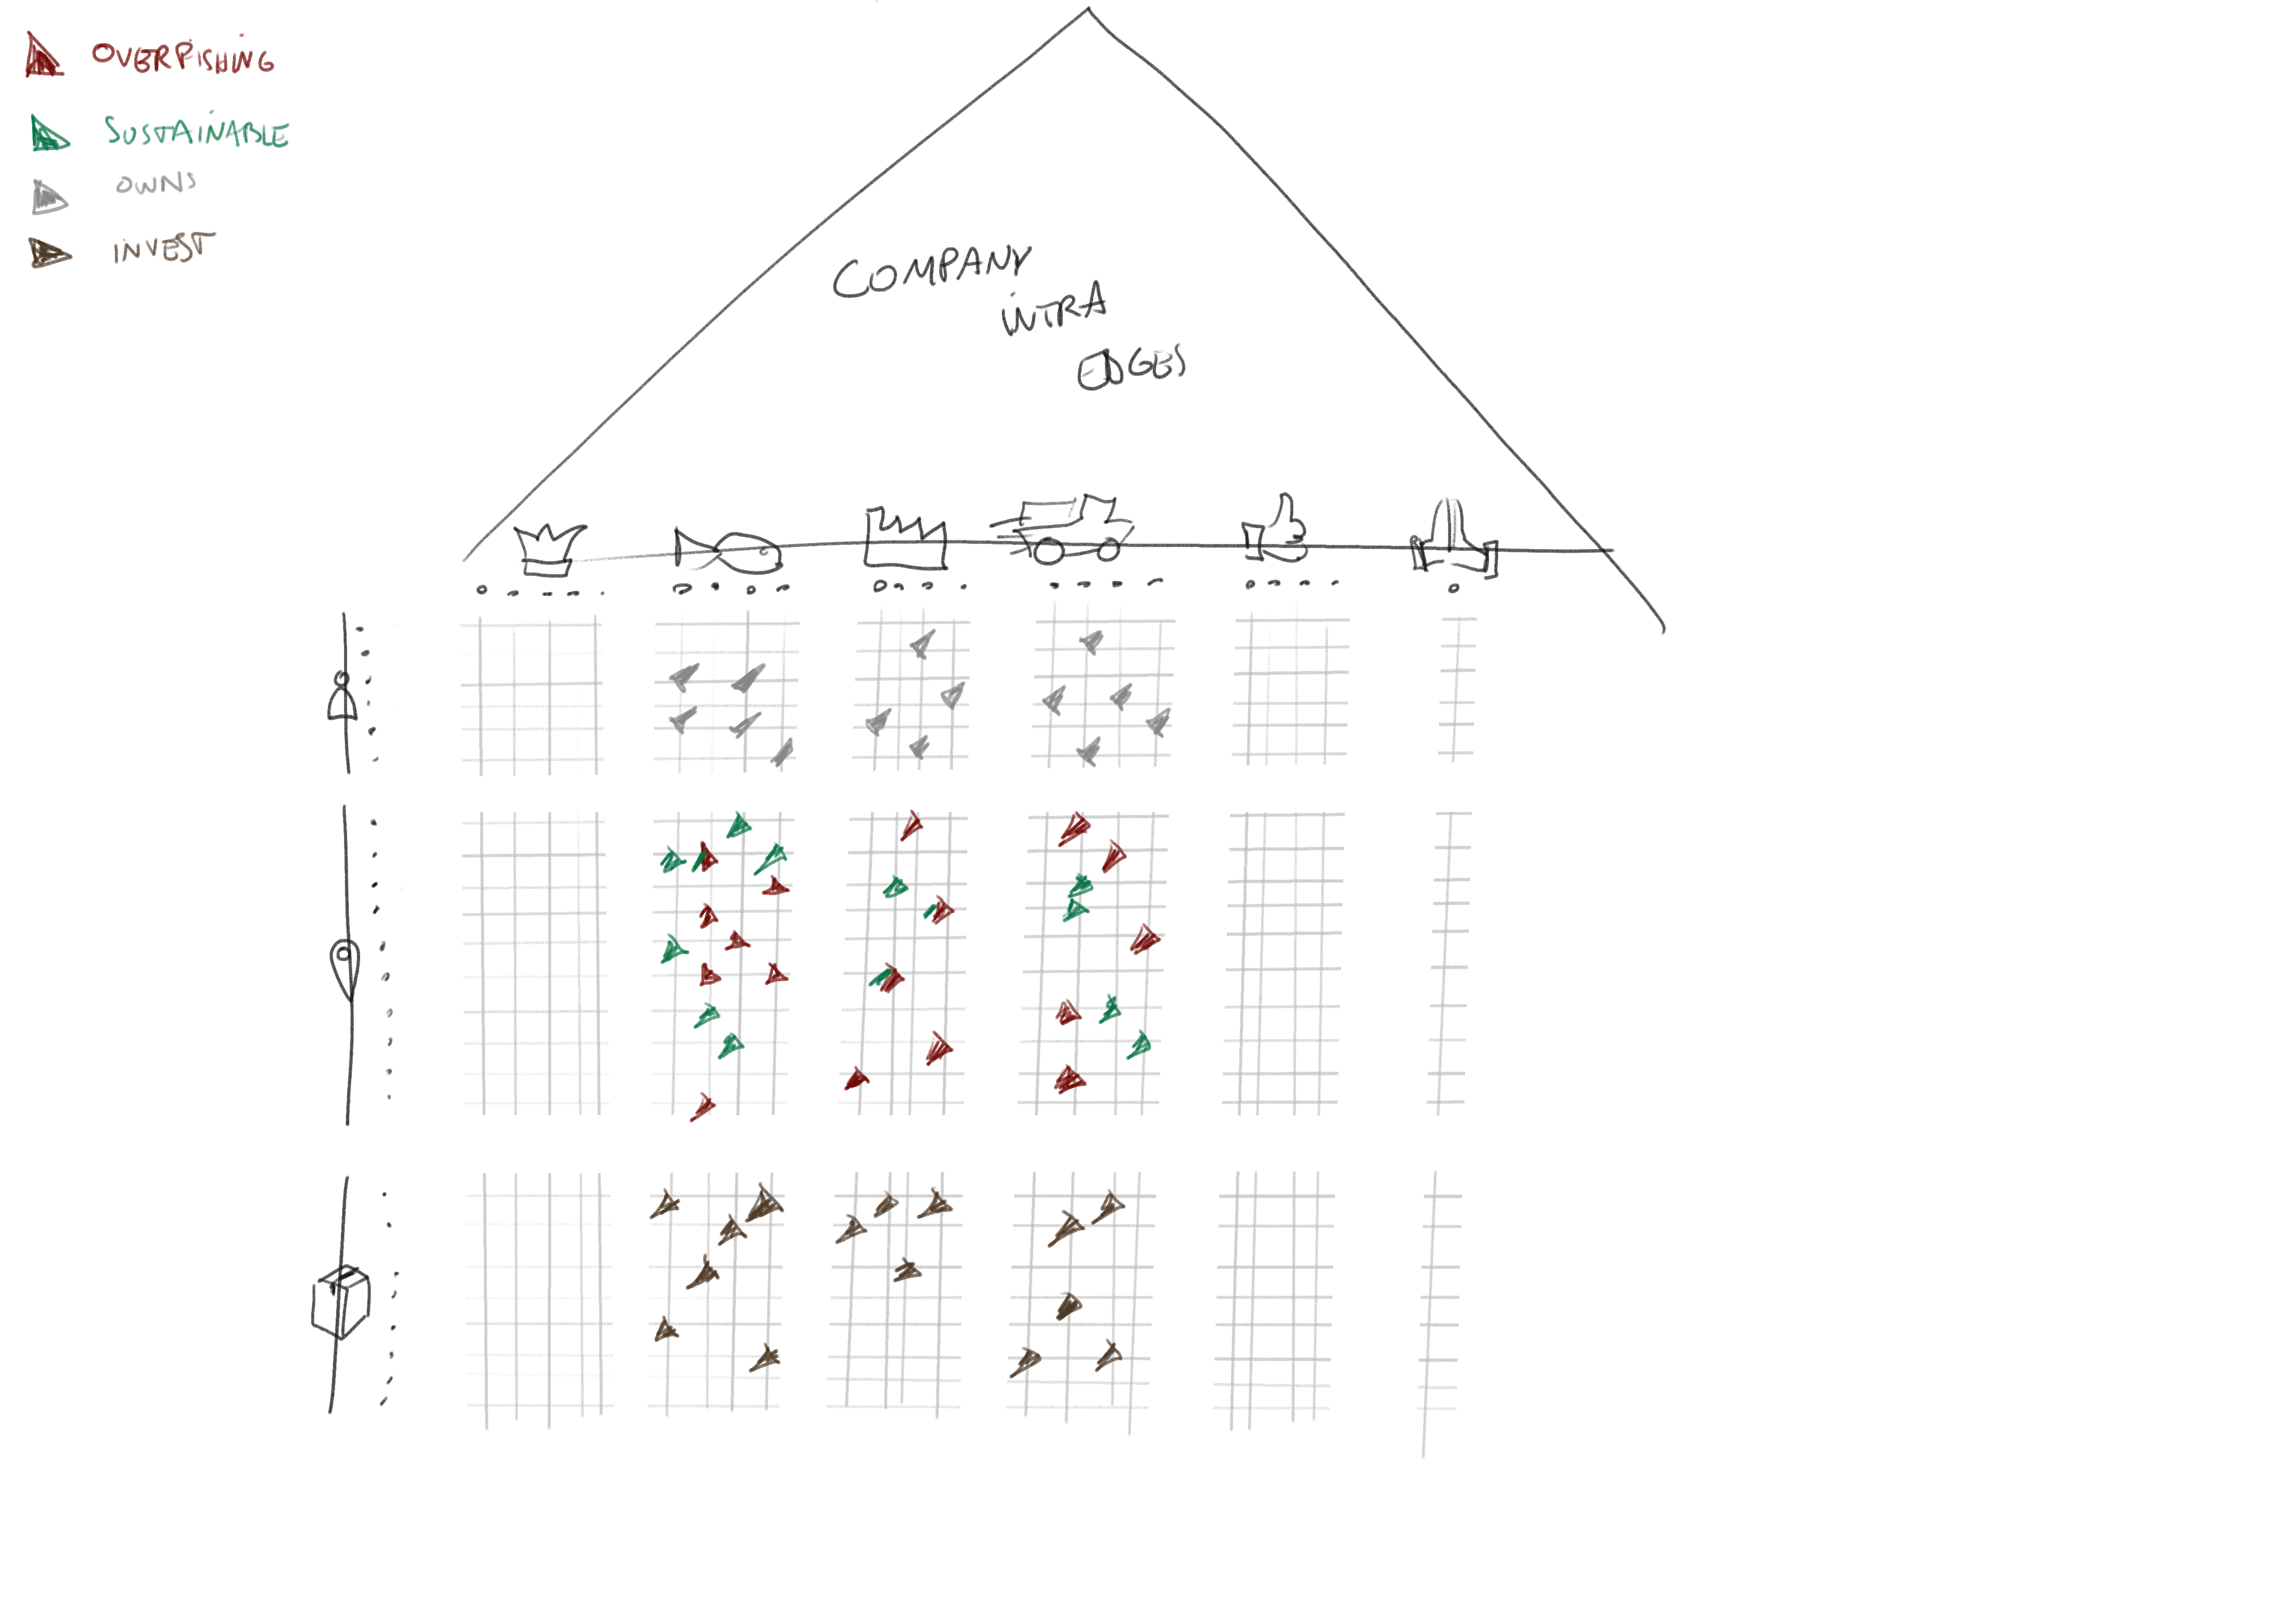 OVERFISHING
SUSTAINABLE
OWNS
INVEST
COMPANY
INTRA
EDGES